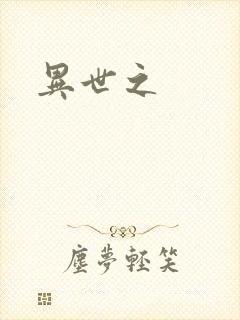 異世之
塵夢輕笑